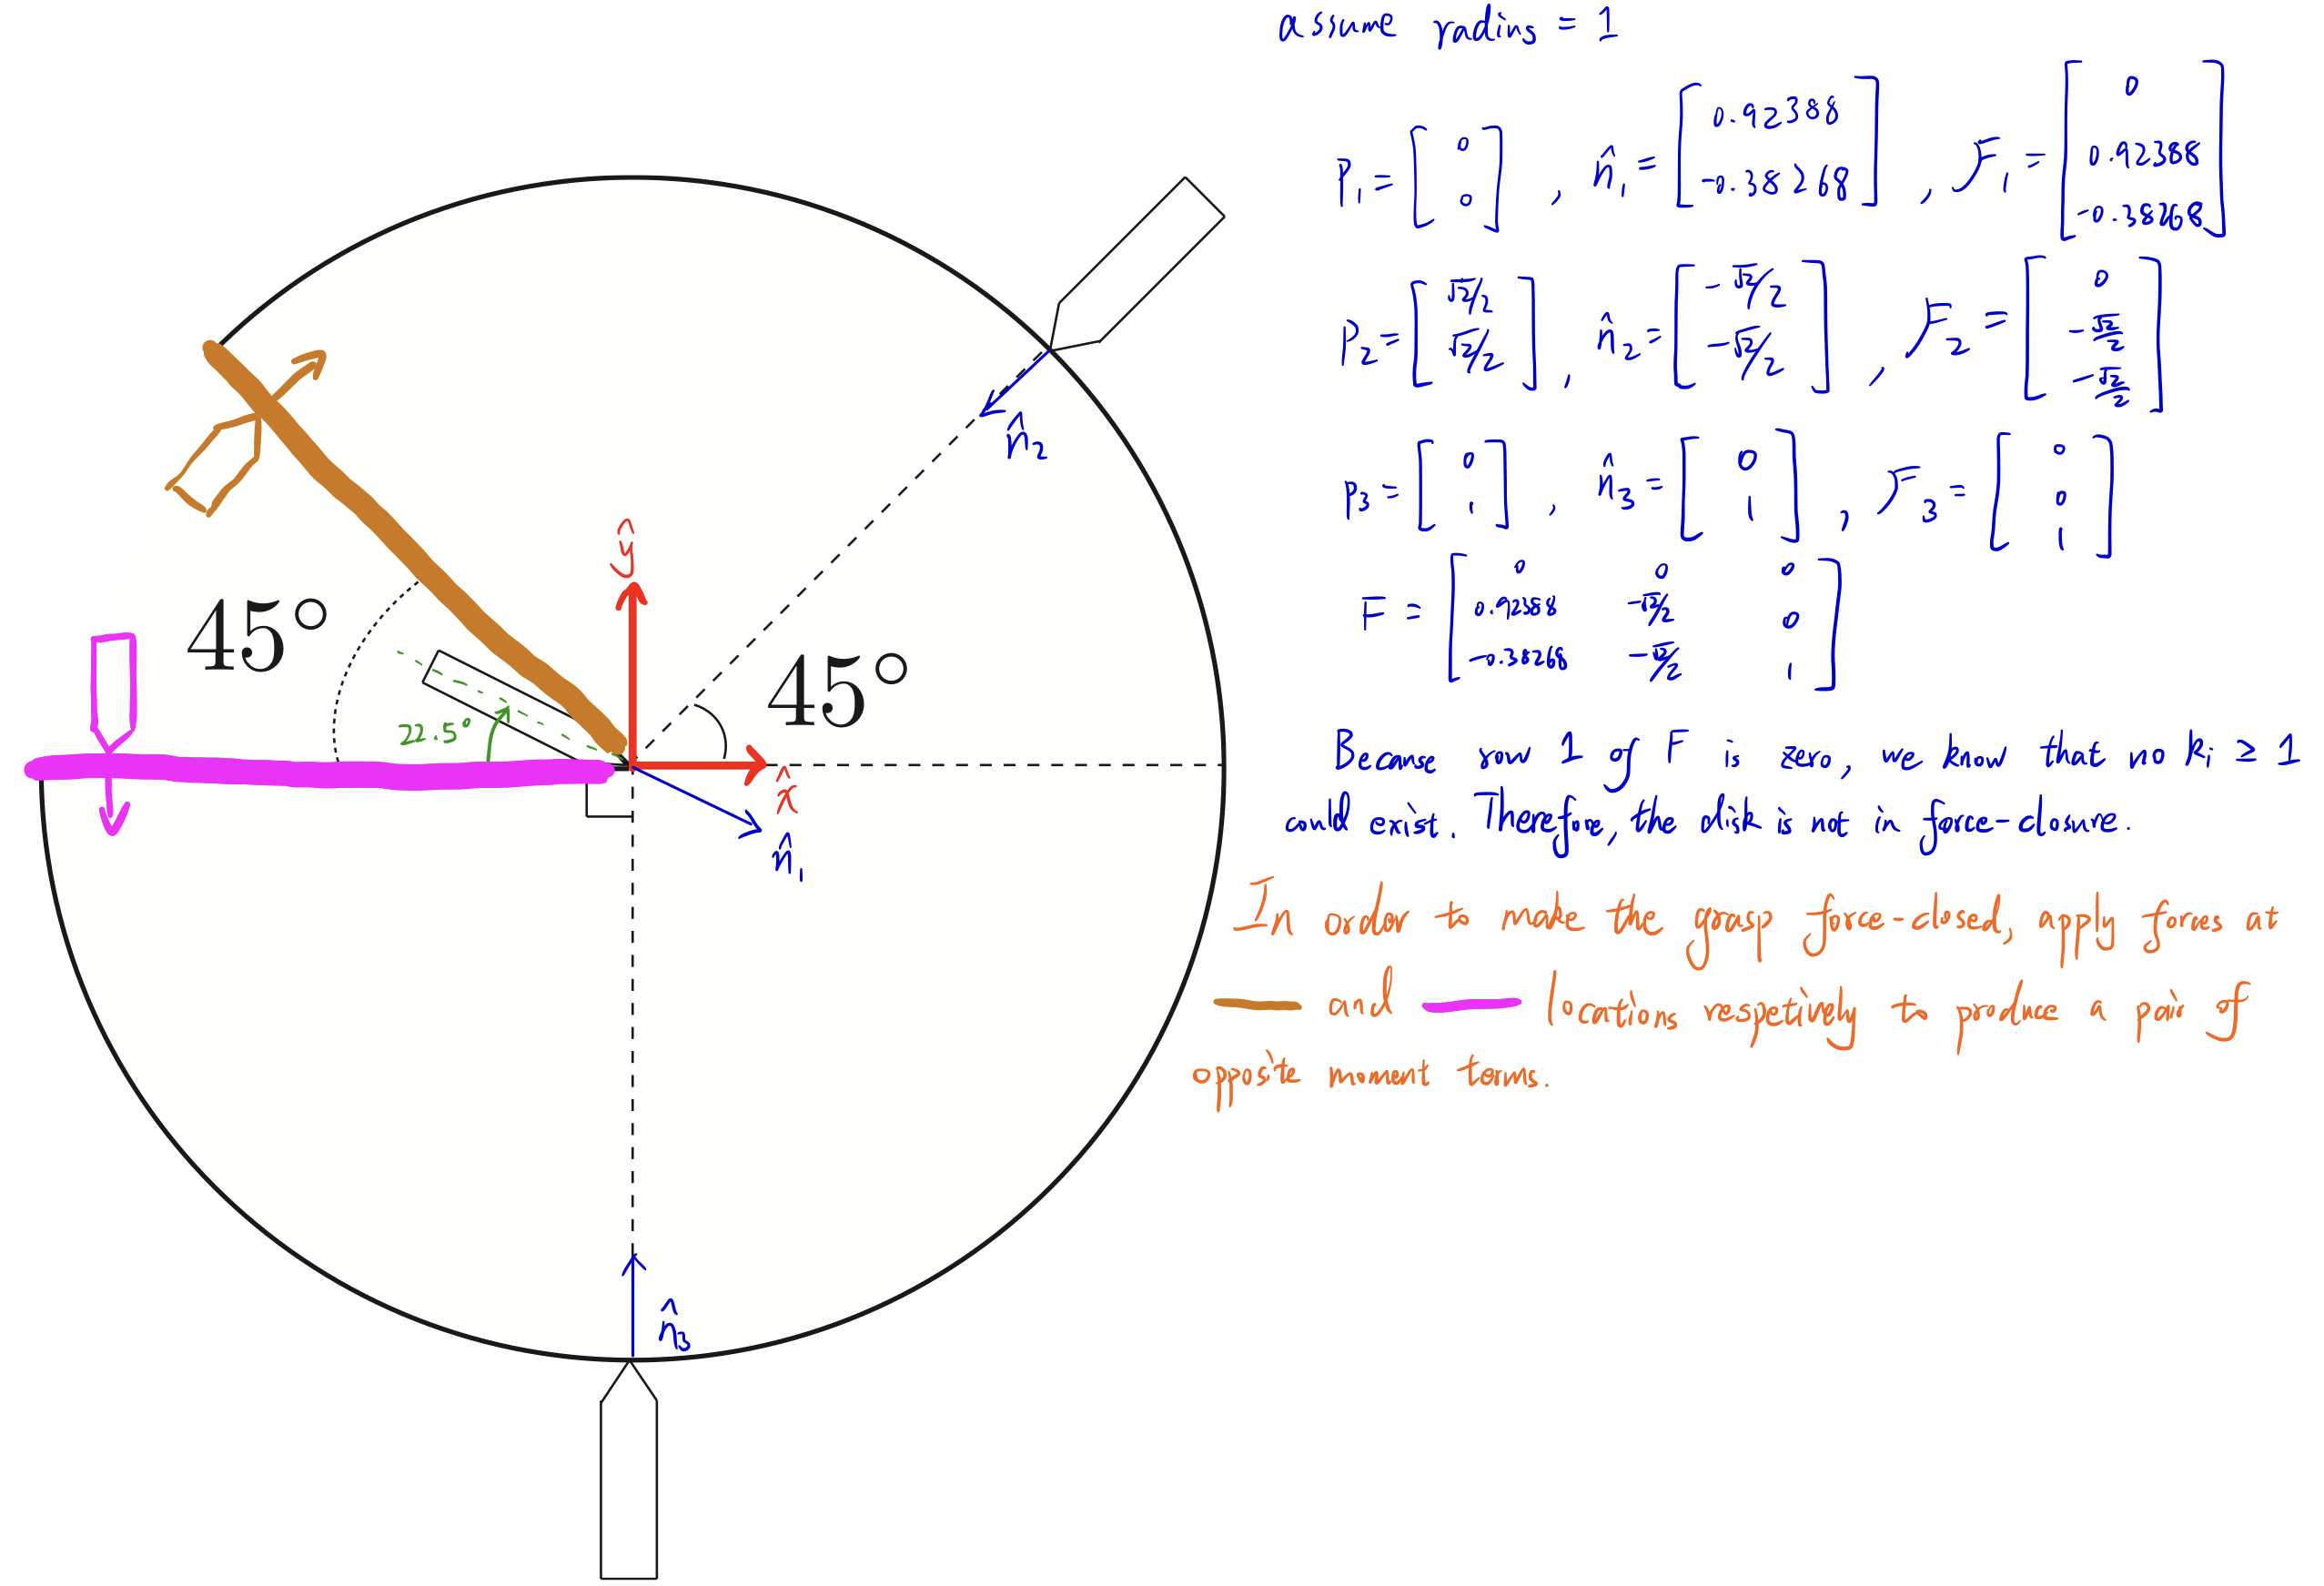 assume radius = 1
P₁ = [0; 0], n̂₁ = [0.92388; -0.38268], 𝓕₁ = [0; 0.92388; -0.38268]
P₂ = [√2/2; √2/2], n̂₂ = [-√2/2; -√2/2], 𝓕₂ = [0; -√2/2; -√2/2]
P₃ = [0; 1], n̂₃ = [0; 1], 𝓕₃ = [0; 0; 1]
F = [0 0 0; 0.92388 -√2/2 0; -0.38268 -√2/2 1]
Because row 1 of F is zero, we know that no kᵢ ≥ 1
could exist. Therefore, the disk is not in force-closure.
In order to make the grasp force-closed, apply forces at
and locations respectively to produce a pair of
opposite moment terms.
n̂₂
ŷ
45°
45°
22.5°
x̂
n̂₁
n̂₃